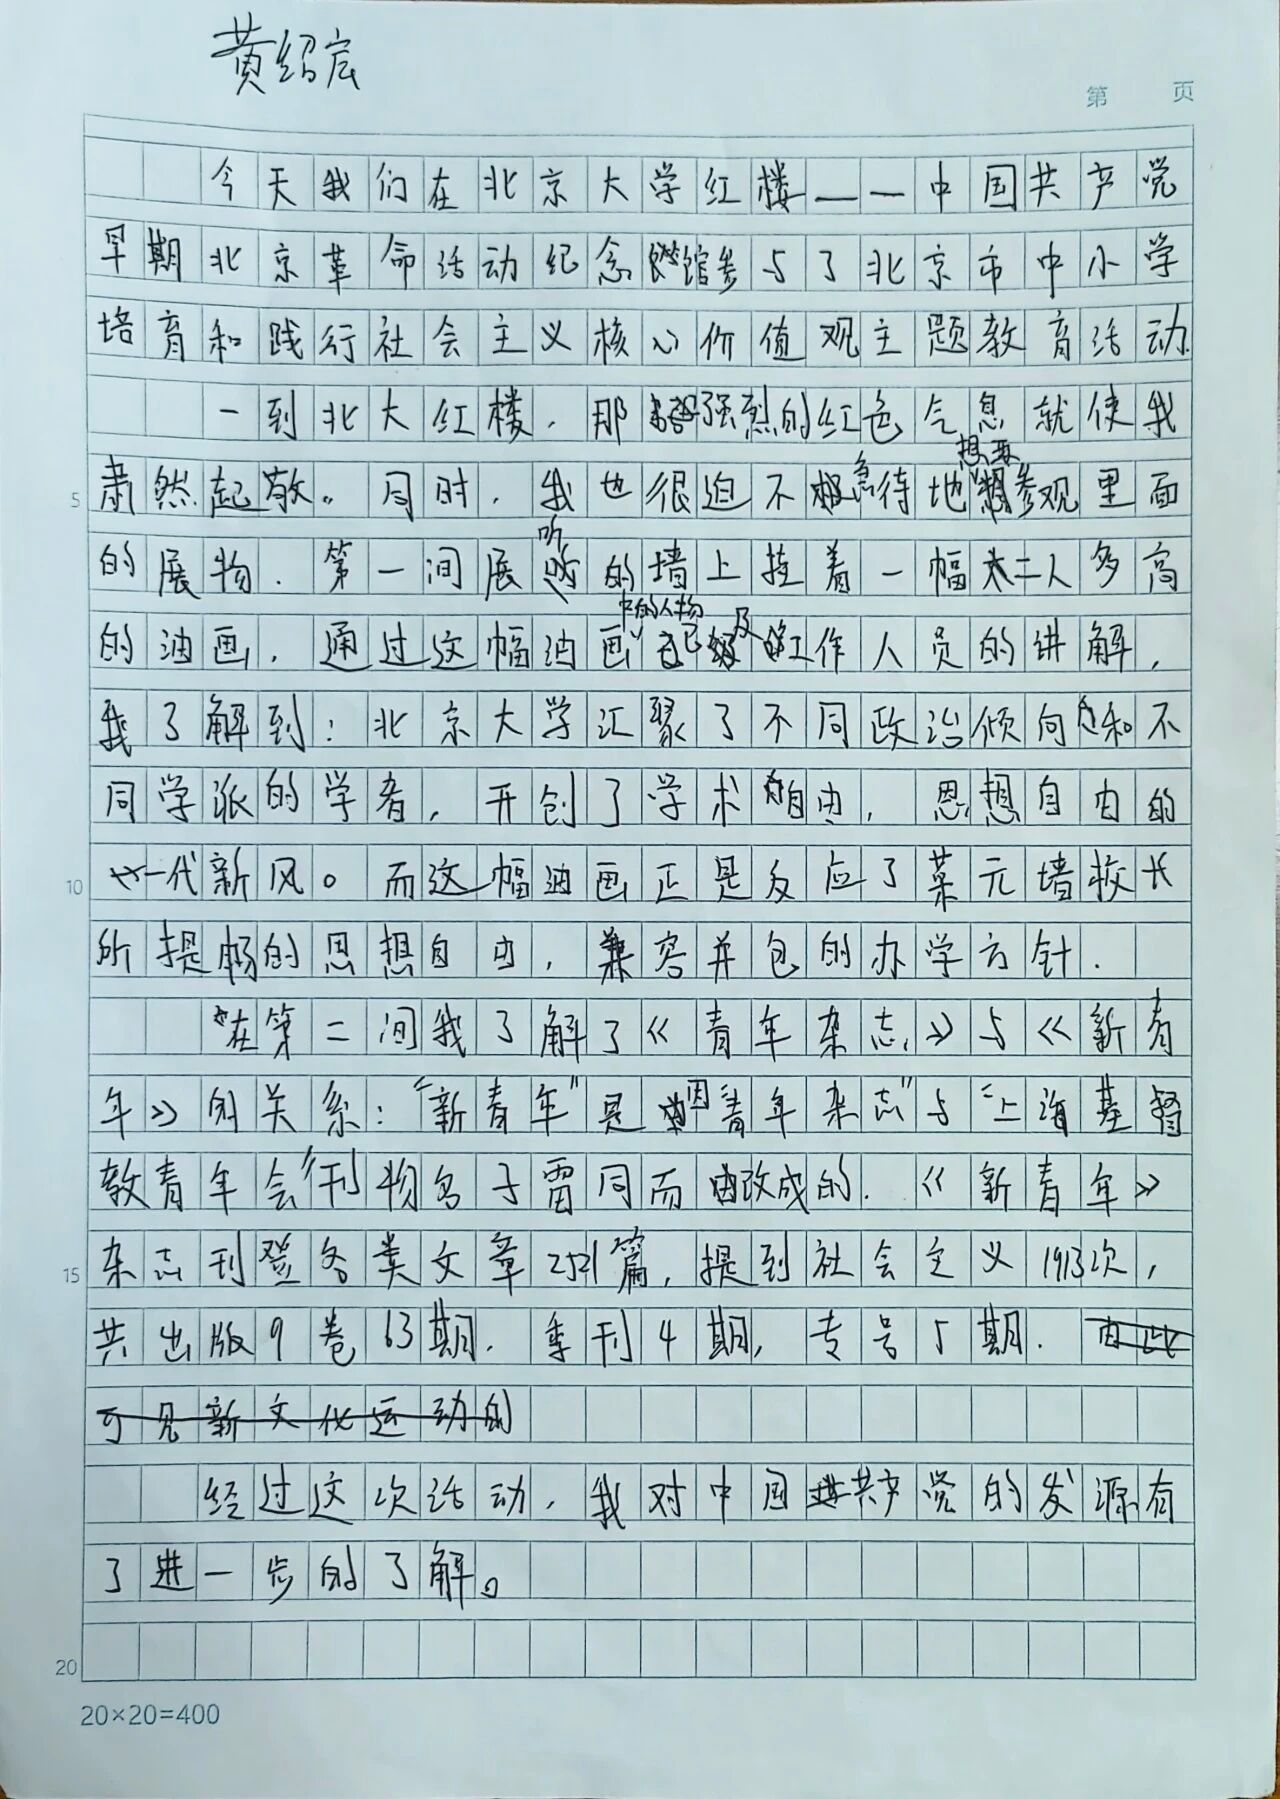 黄绍宸
第 页
今天我们在北京大学红楼——中国共产党
早期北京革命活动纪念馆参与了北京市中小学
培育和践行社会主义核心价值观主题教育活动.
一到北大红楼,那强烈的红色气息就使我
肃然起敬。同时,我也很迫不急待地想要参观里面
的展物.第一间展听的墙上挂着一幅二人多高
的油画,通过这幅油画中的人物及工作人员的讲解,
我了解到:北京大学汇聚了不同政治倾向和不
同学派的学者,开创了学术自由,思想自由的
一代新风。而这幅油画正是反应了蔡元墙校长
所提畅的思想自由,兼容并包的办学方针.
在第二间我了解了《青年杂志》与《新青
年》的关系:“新青年”是因“青年杂志”与“上海基督
教青年会”刊物名子雷同而改成的.《新青年》
5
10
15
20
杂志刊登各类文章2521篇,提到社会主义1913次,
共出版9卷63期.季刊4期,专号5期.由此
可见新文化运动的
经过这次活动,我对中国共产党的发源有
了进一步的了解。
20×20=400